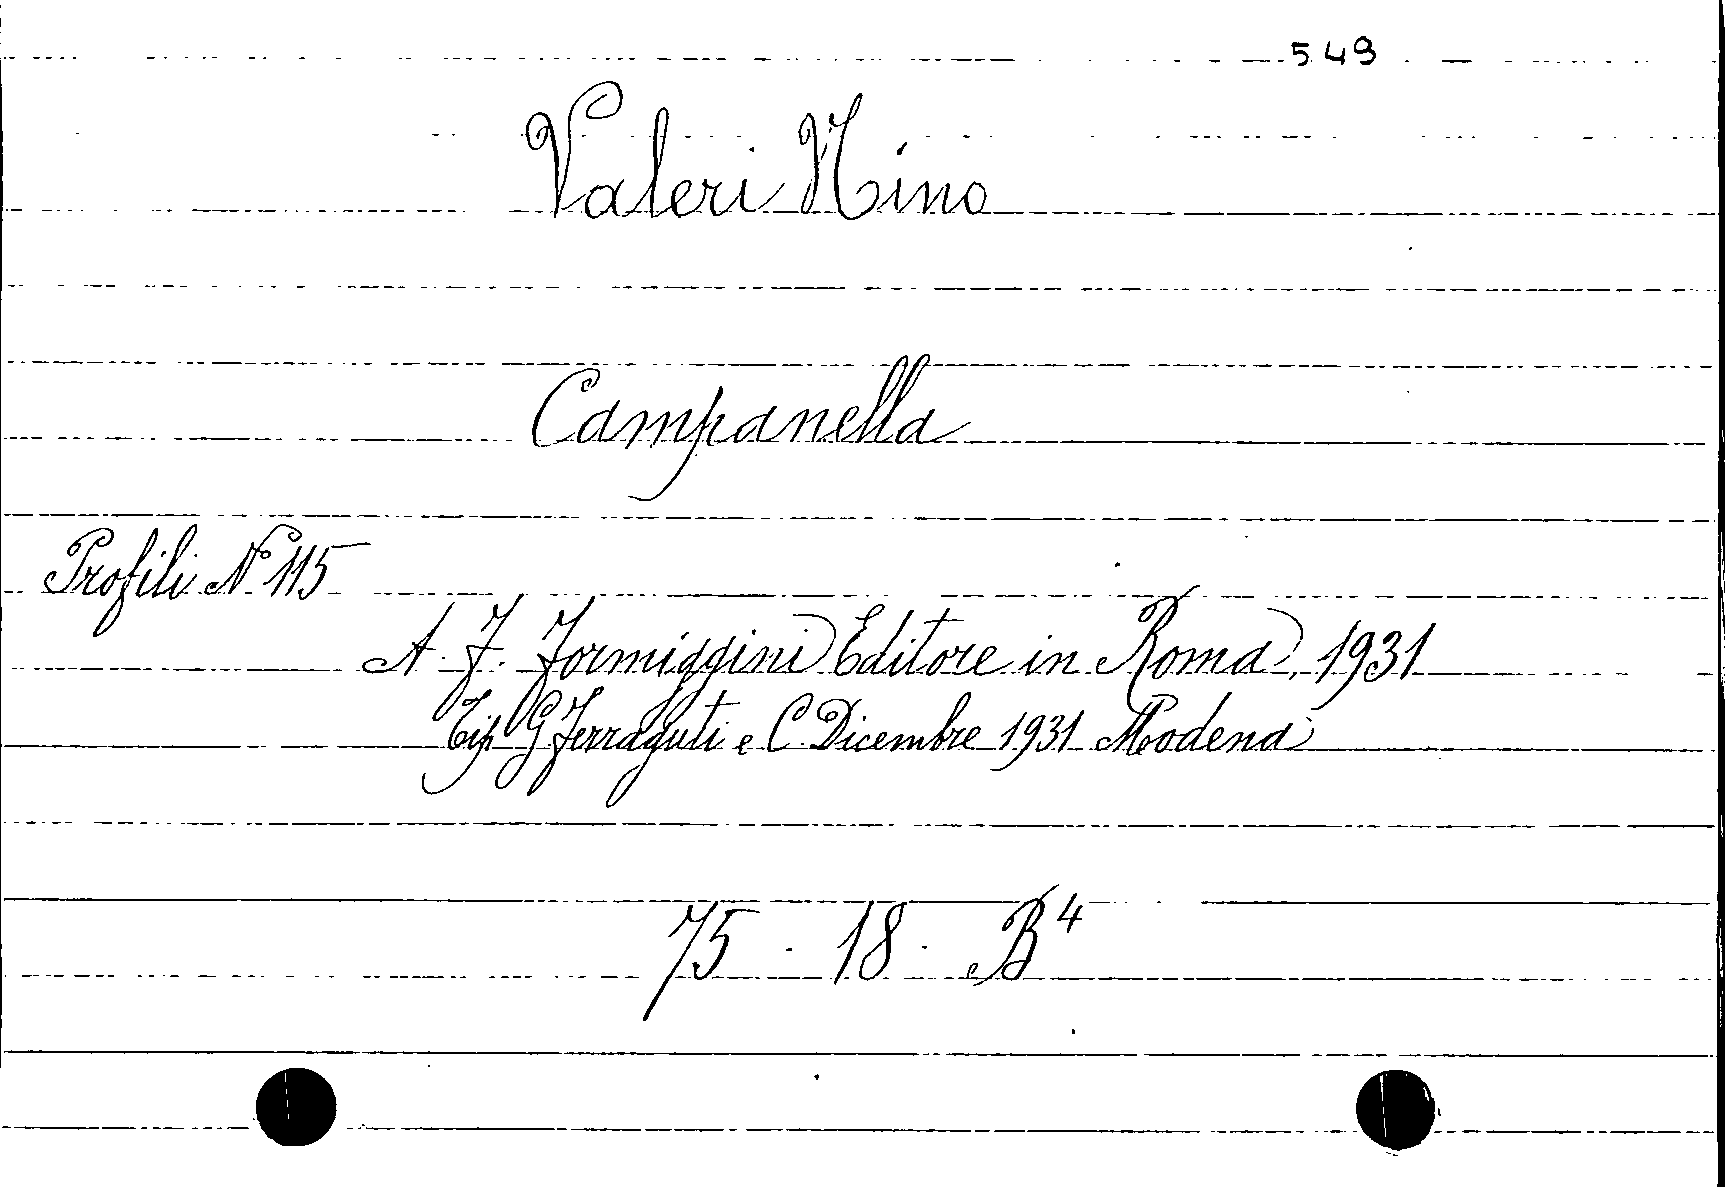 549
Valeri Nino
Campanella
Profili N° 115
A. F. Formiggini Editore in Roma, 1931
Tip G Ferraguti e C. Dicembre 1931 Modena
75 · 18 · B⁴